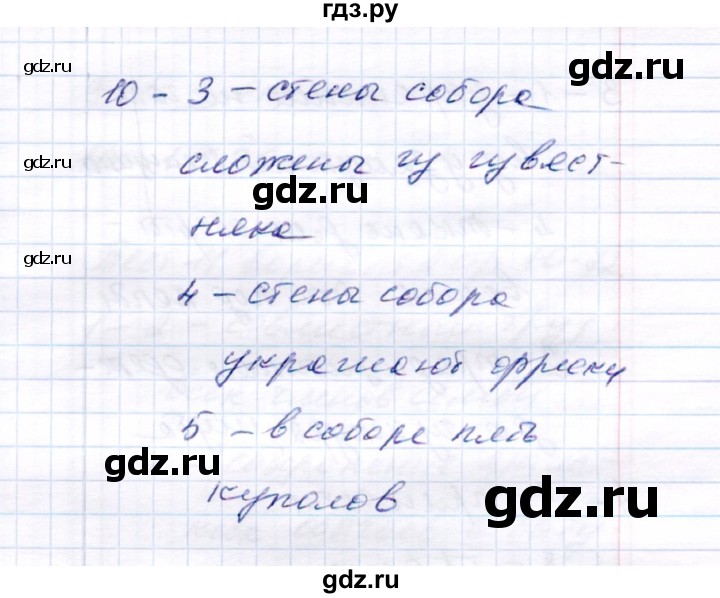 гдз.ру
gdz.ru
10 - 3 - стены собора
gdz.ru
сложены из известgdz.ru
gdz.ru
няка
gdz.ru
4 - стены собора
украшают фрески
5 - в соборе пять
gdz.ru
куполов
gdz.ru
gdz.ru